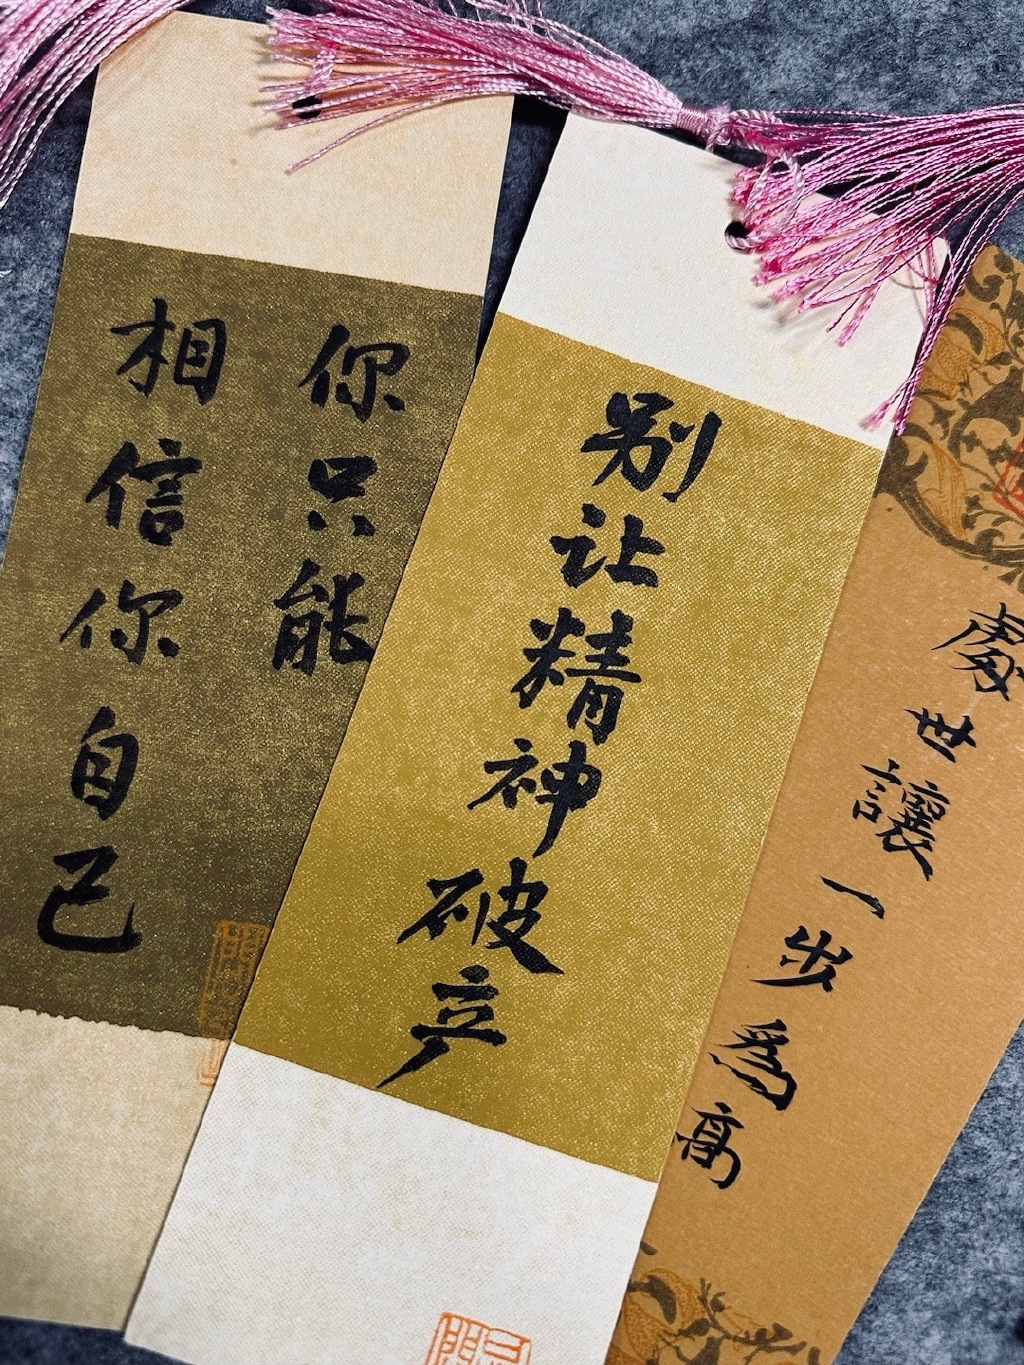 你只能
相信你自己
别让精神破产
處世讓一步為高